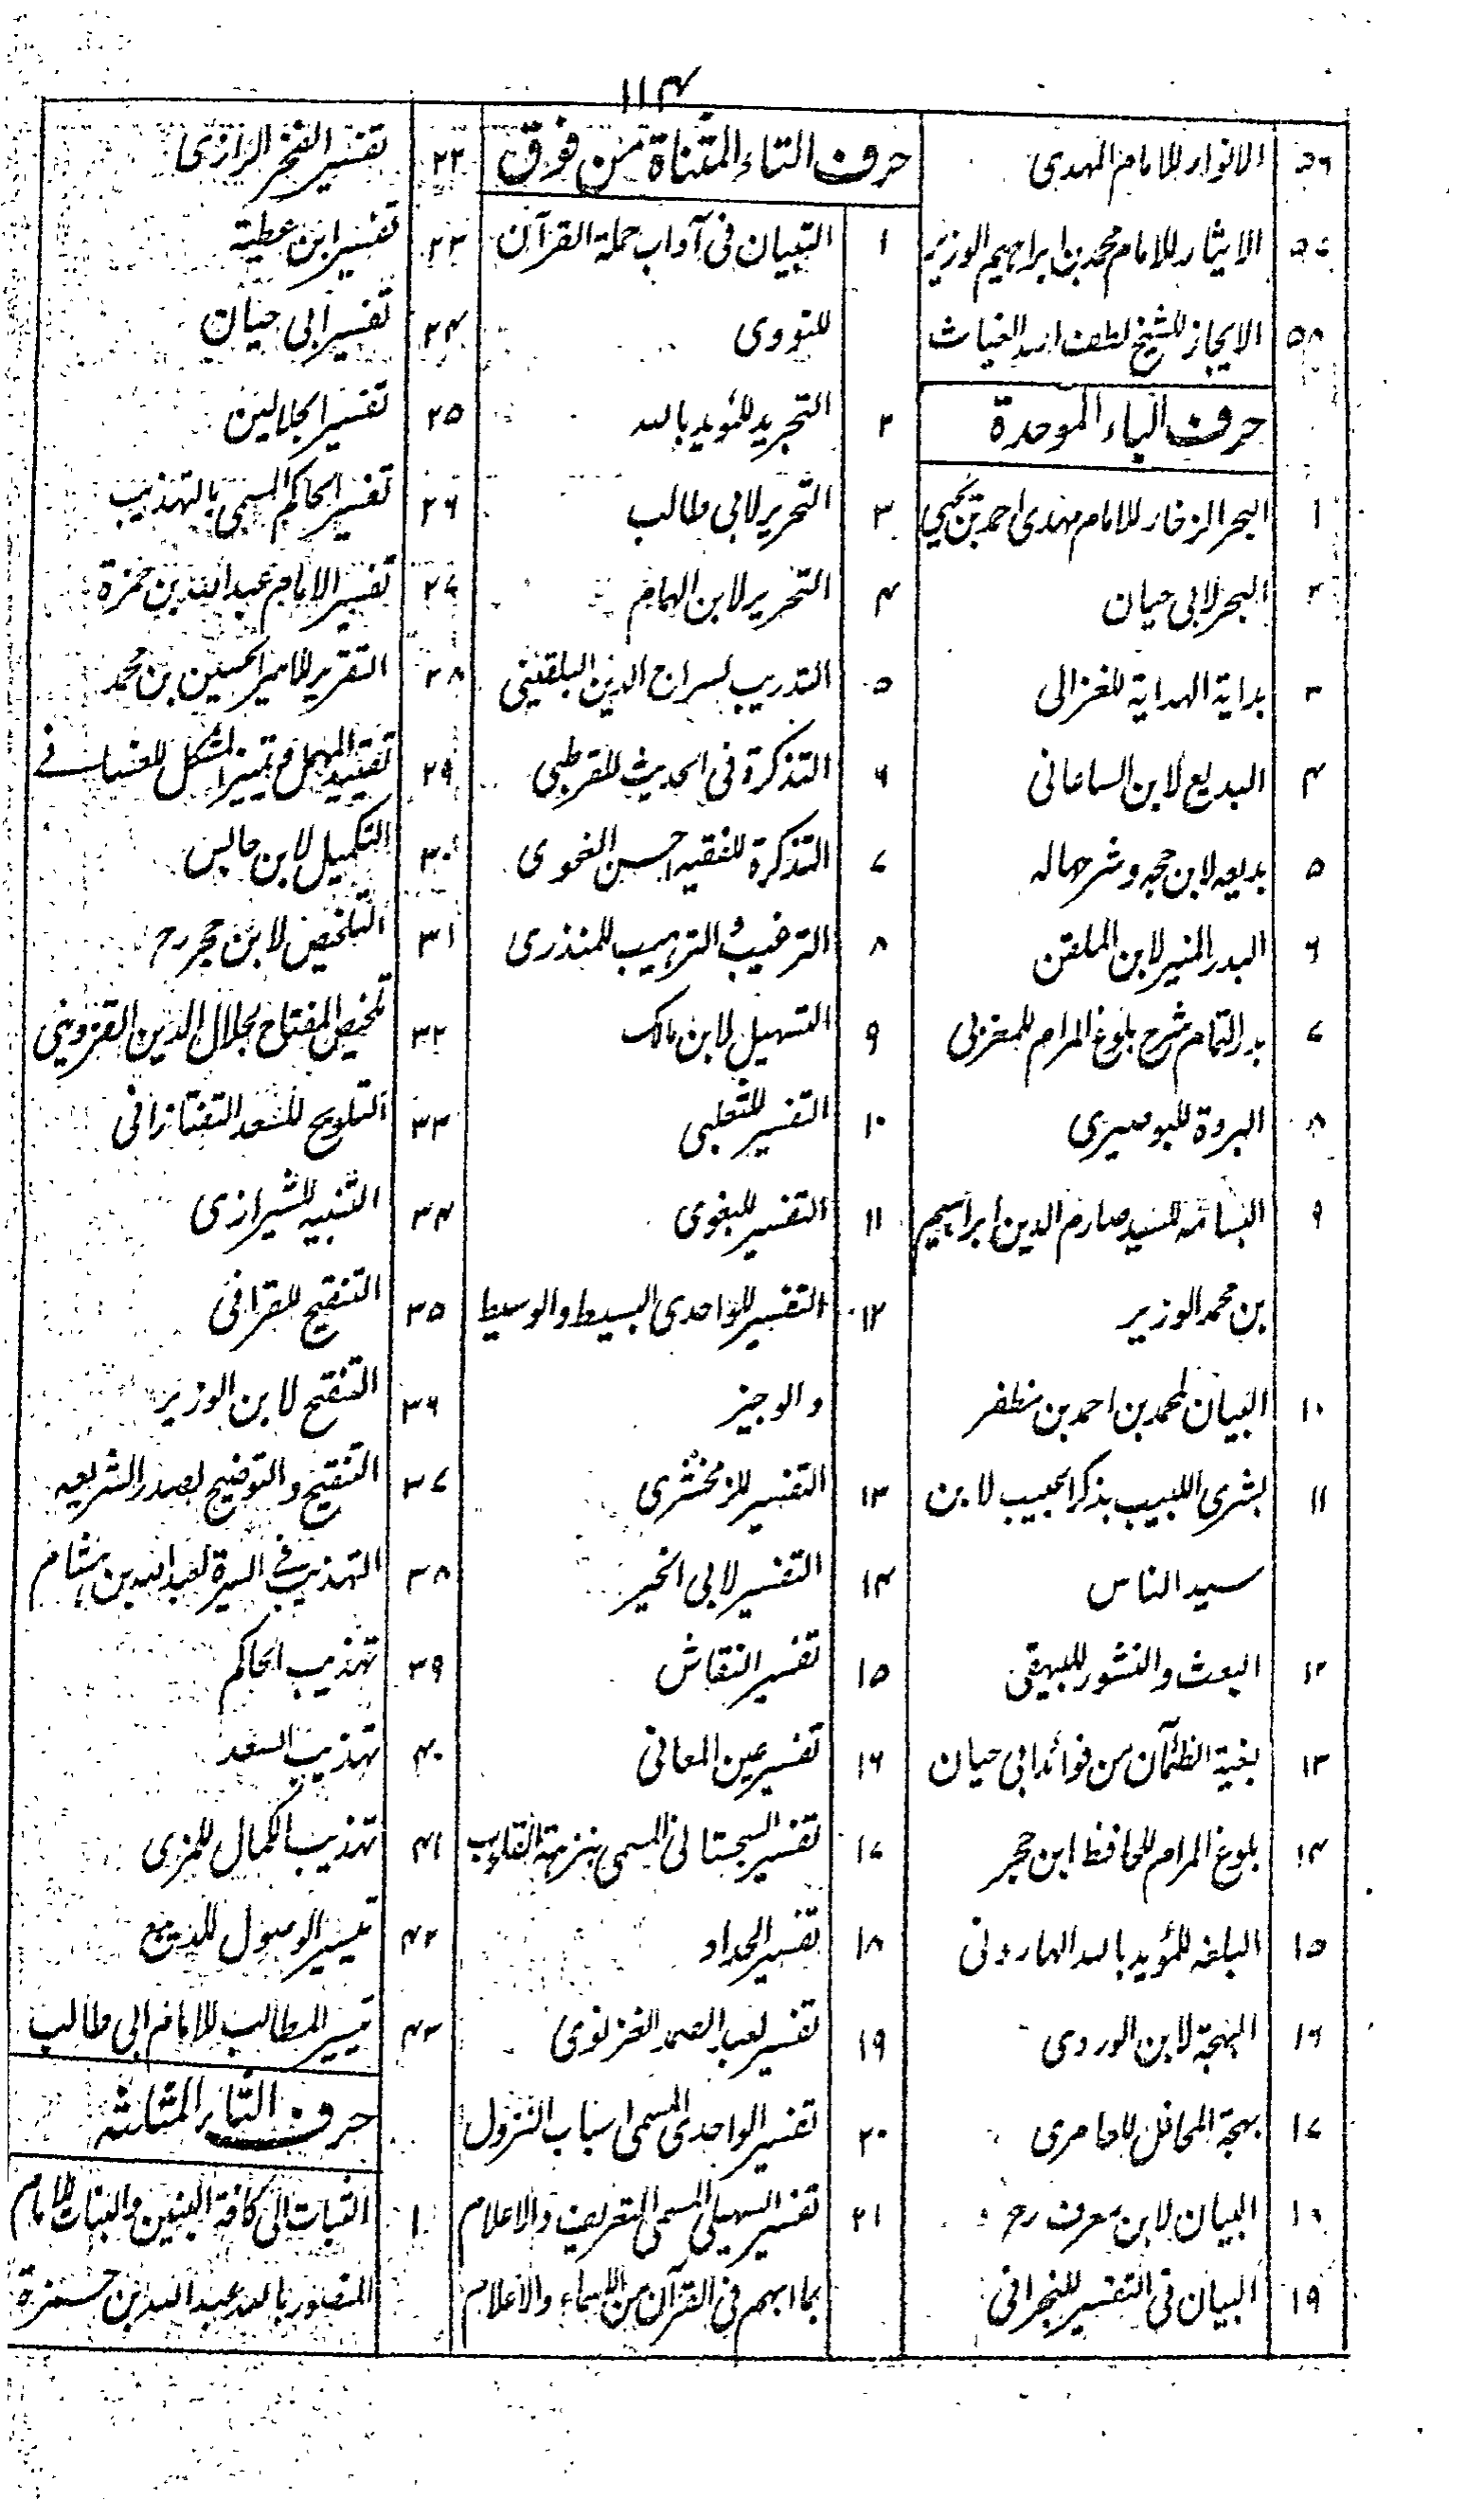 ١١٤
٥٦ الانوار للامام المهدى
٥٧ الايثار للامام محمد بن ابراهيم الوزير
٥٨ الايجاز للشيخ لطف الله الغياث
حرف الباء الموحدة
١ البحر الزخار للامام مهدى احمد بن يحيي
٢ البحر لابى حيان
٣ بداية الهداية للغزالى
٤ البديع لابن الساعاتى
٥ بديعه لابن حجه و شرحها له
٦ البدر المنير لابن الملقن
٧ بدر التمام شرح بلوغ المرام للمغربى
٨ البردة للبوصيرى
٩ البسامه للسيد صارم الدين ابراهيم
بن محمد الوزير
١٠ البيان لمحمد بن احمد بن مظفر
١١ بشرى اللبيب بذكر الحبيب لابن
سيد الناس
١٢ البعث و النشور للبيهقى
١٣ بغية الظمآن من فوائد ابى حيان
١٤ بلوغ المرام للحافظ ابن حجر
١٥ البلغه للمؤيد بالله الهارونى
١٦ البهجة لابن الوردى
١٧ بهجة المحافل للعامرى
١٨ البيان لابن معرف رح
١٩ البيان فى التفسير للنجرانى
حرف التاء المثناة من فوق
١ التبيان فى آداب حملة القرآن
للنووى
٢ التجريد للمؤيد بالله
٣ التحرير لابى طالب
٤ التحرير لابن الهمام
٥ التدريب لسراج الدين البلقينى
٦ التذكرة فى الحديث للقرطبى
٧ التذكرة للفقيه حسن النحوى
٨ الترغيب و الترهيب للمنذرى
٩ التسهيل لابن مالك
١٠ التفسير للثعلبى
١١ التفسير للبغوى
١٢ التفسير للواحدى البسيط و الوسيط
و الوجيز
١٣ التفسير للزمخشرى
١٤ التفسير لابى الخير
١٥ تفسير النقاش
١٦ تفسير عين المعانى
١٧ تفسير السجستانى المسمى بنزهة القلوب
١٨ تفسير الحداد
١٩ تفسير لعبد الصمد الغزنوى
٢٠ تفسير الواحدى المسمى اسباب النزول
٢١ تفسير السهيلى المسمى التعريف و الاعلام
بما ابهم فى القرآن من الاسماء و الاعلام
٢٢ تفسير الفخر الرازى
٢٣ تفسير ابن عطية
٢٤ تفسير ابى حيان
٢٥ تفسير الجلالين
٢٦ تفسير الحاكم المسمى بالتهذيب
٢٧ تفسير الامام عبد الله بن حمزة
٢٨ التقرير للامير الحسين بن محمد
٢٩ تقييد المهمل و تمييز المشكل للغسانى
٣٠ التكميل لابن حابس
٣١ التلخيص لابن حجر رح
٣٢ تلخيص المفتاح لجلال الدين القزوينى
٣٣ التلويح للسعد التفتازانى
٣٤ التنبيه للشيرازى
٣٥ التنقيح للقرافى
٣٦ التنقح لابن الوزير
٣٧ التنقيح و التوضيح لصدر الشريعه
٣٨ التهذيب فى السيرة لعبد الله بن هشام
٣٩ تهذيب الحاكم
٤٠ تهذيب السعد
٤١ تهذيب الكمال للمزى
٤٢ تيسير الوصول للديبع
٤٣ تيسير المطالب للامام ابى طالب
حرف الثاء المثلثه
١ الثبات الى كافة البنين و البنات للامام
المنصور بالله عبد الله بن حمزة